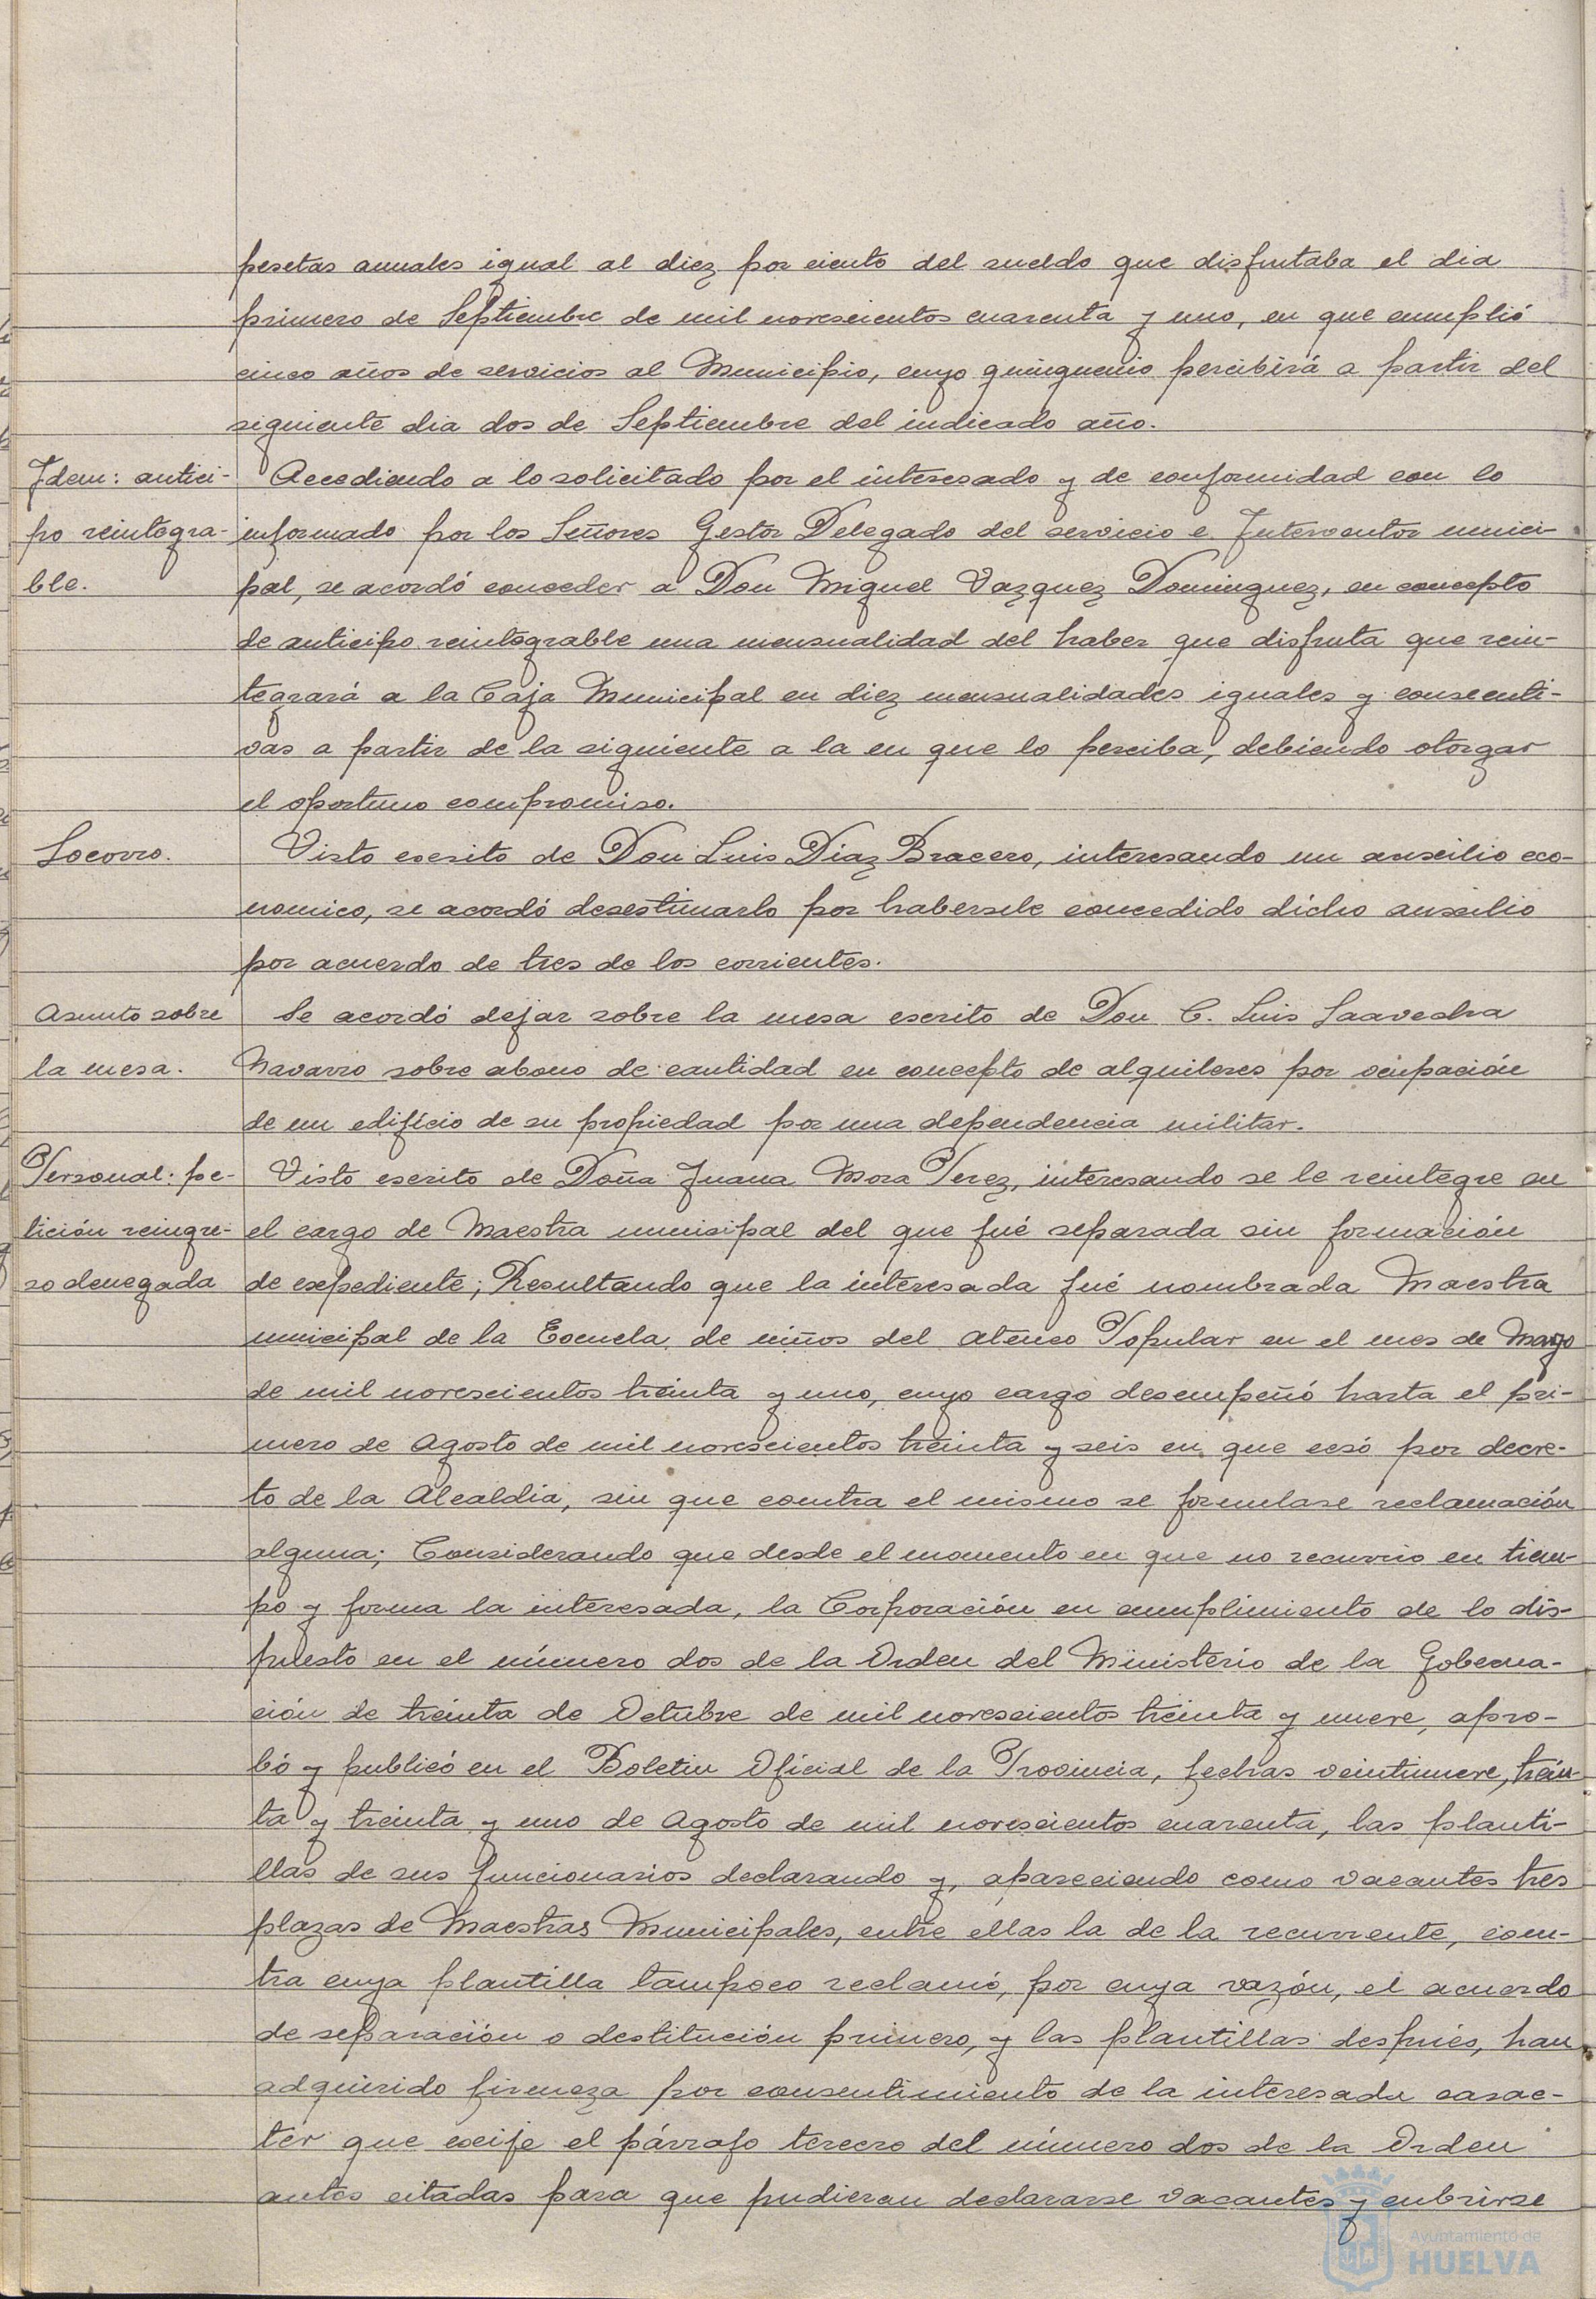 pesetas anuales igual al diez por ciento del sueldo que disfrutaba el dia
primero de Septiembre de mil novescientos cuarenta y uno, en que cumplió
cinco años de servicios al Municipio, cuyo quinquenio percibirá a partir del
siguiente dia dos de Septiembre del indicado año.
Idem: antici-
po reintegra-
ble.
Accediendo a lo solicitado por el interesado y de conformidad con lo
informado por los Señores Gestor Delegado del servicio e Interventor munici-
pal, se acordó conceder a Don Miguel Vazquez Dominguez, en concepto
de anticipo reintegrable una mensualidad del haber que disfruta que rein-
tegrará a la Caja Municipal en diez mensualidades iguales y consecuti-
vas a partir de la siguiente a la en que lo perciba, debiendo otorgar
el oportuno compromiso.
Socorro.
Visto escrito de Don Luis Díaz Bracero, interesando un auxcilio eco-
nomico, se acordó desestimarlo por habersele concedido dicho auxcilio
por acuerdo de tres de los corrientes.
Asunto sobre
la mesa.
Se acordó dejar sobre la mesa escrito de Don C. Luis Saavedra
Navarro sobre abono de cantidad en concepto de alquileres por ocupación
de un edificio de su propiedad por una dependencia militar.
Personal: pe-
tición reingre-
so denegada
Visto escrito de Doña Juana Mora Perez, interesando se le reintegre en
el cargo de Maestra municipal del que fué separada sin formación
de expediente; Resultando que la interesada fué nombrada Maestra
municipal de la Escuela de niños del Ateneo Popular en el mes de Mayo
de mil novescientos treinta y uno, cuyo cargo desempeñó hasta el pri-
mero de Agosto de mil novescientos treinta y seis en que cesó por decre-
to de la Alcaldia, sin que contra el mismo se formulase reclamación
alguna; Considerando que desde el momento en que no recurrio en tiem-
po y forma la interesada, la Corporación en cumplimiento de lo dis-
puesto en el número dos de la Orden del Ministerio de la Goberna-
ción de treinta de Octubre de mil novescientos treinta y nueve, apro-
bó y publicó en el Boletin Oficial de la Provincia, fechas veintinueve, trein-
ta y treinta y uno de Agosto de mil novescientos cuarenta, las planti-
llas de sus funcionarios declarando y, apareciendo como vacantes tres
plazas de Maestras Municipales, entre ellas la de la recurrente, con-
tra cuya plantilla tampoco reclamó, por cuya razón, el acuerdo
de separación o destitución primero, y las plantillas después, han
adquirido firmeza por consentimiento de la interesada carac-
ter que exije el párrafo tercero del número dos de la Orden
antes citadas para que pudieran declararse vacantes y cubrirse
Ayuntamiento de
HUELVA